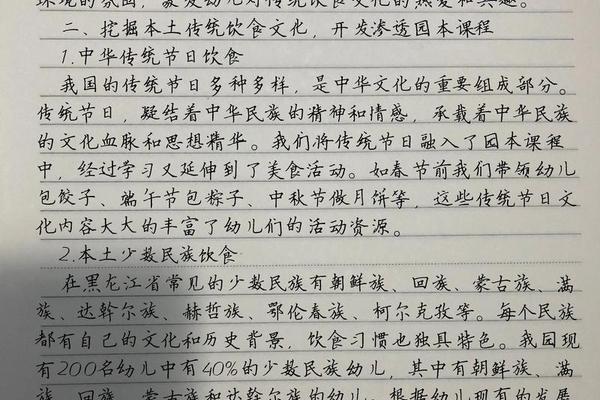 环境的氛围，激发幼儿对传统饮食文化的热爱和兴趣。
二、挖掘本土传统饮食文化，开发渗透园本课程
1.中华传统节日饮食
我国的传统节日多种多样，是中华文化的重要组成部分。
传统节日，凝结着中华民族的精神和情感，承载着中华民族
的文化血脉和思想精华。我们将传统节日融入了园本课程
中，经过学习又延伸到了美食活动。如春节前我们带领幼儿
包饺子、端午节包粽子、中秋节做月饼等，这些传统节日文
化内容大大的丰富了幼儿们的活动资源。
2.本土少数民族饮食
在黑龙江省常见的少数民族有朝鲜族、回族、蒙古族、满
族、达斡尔族、赫哲族、鄂伦春族、柯尔克孜等。每个民族
都有自己的文化和历史背景，饮食习惯也独具特色。我园现
有200名幼儿中有40%的少数民族幼儿，其中有朝鲜族、满
族、回族、蒙古族和达斡尔族的幼儿。根据幼儿现有的发展